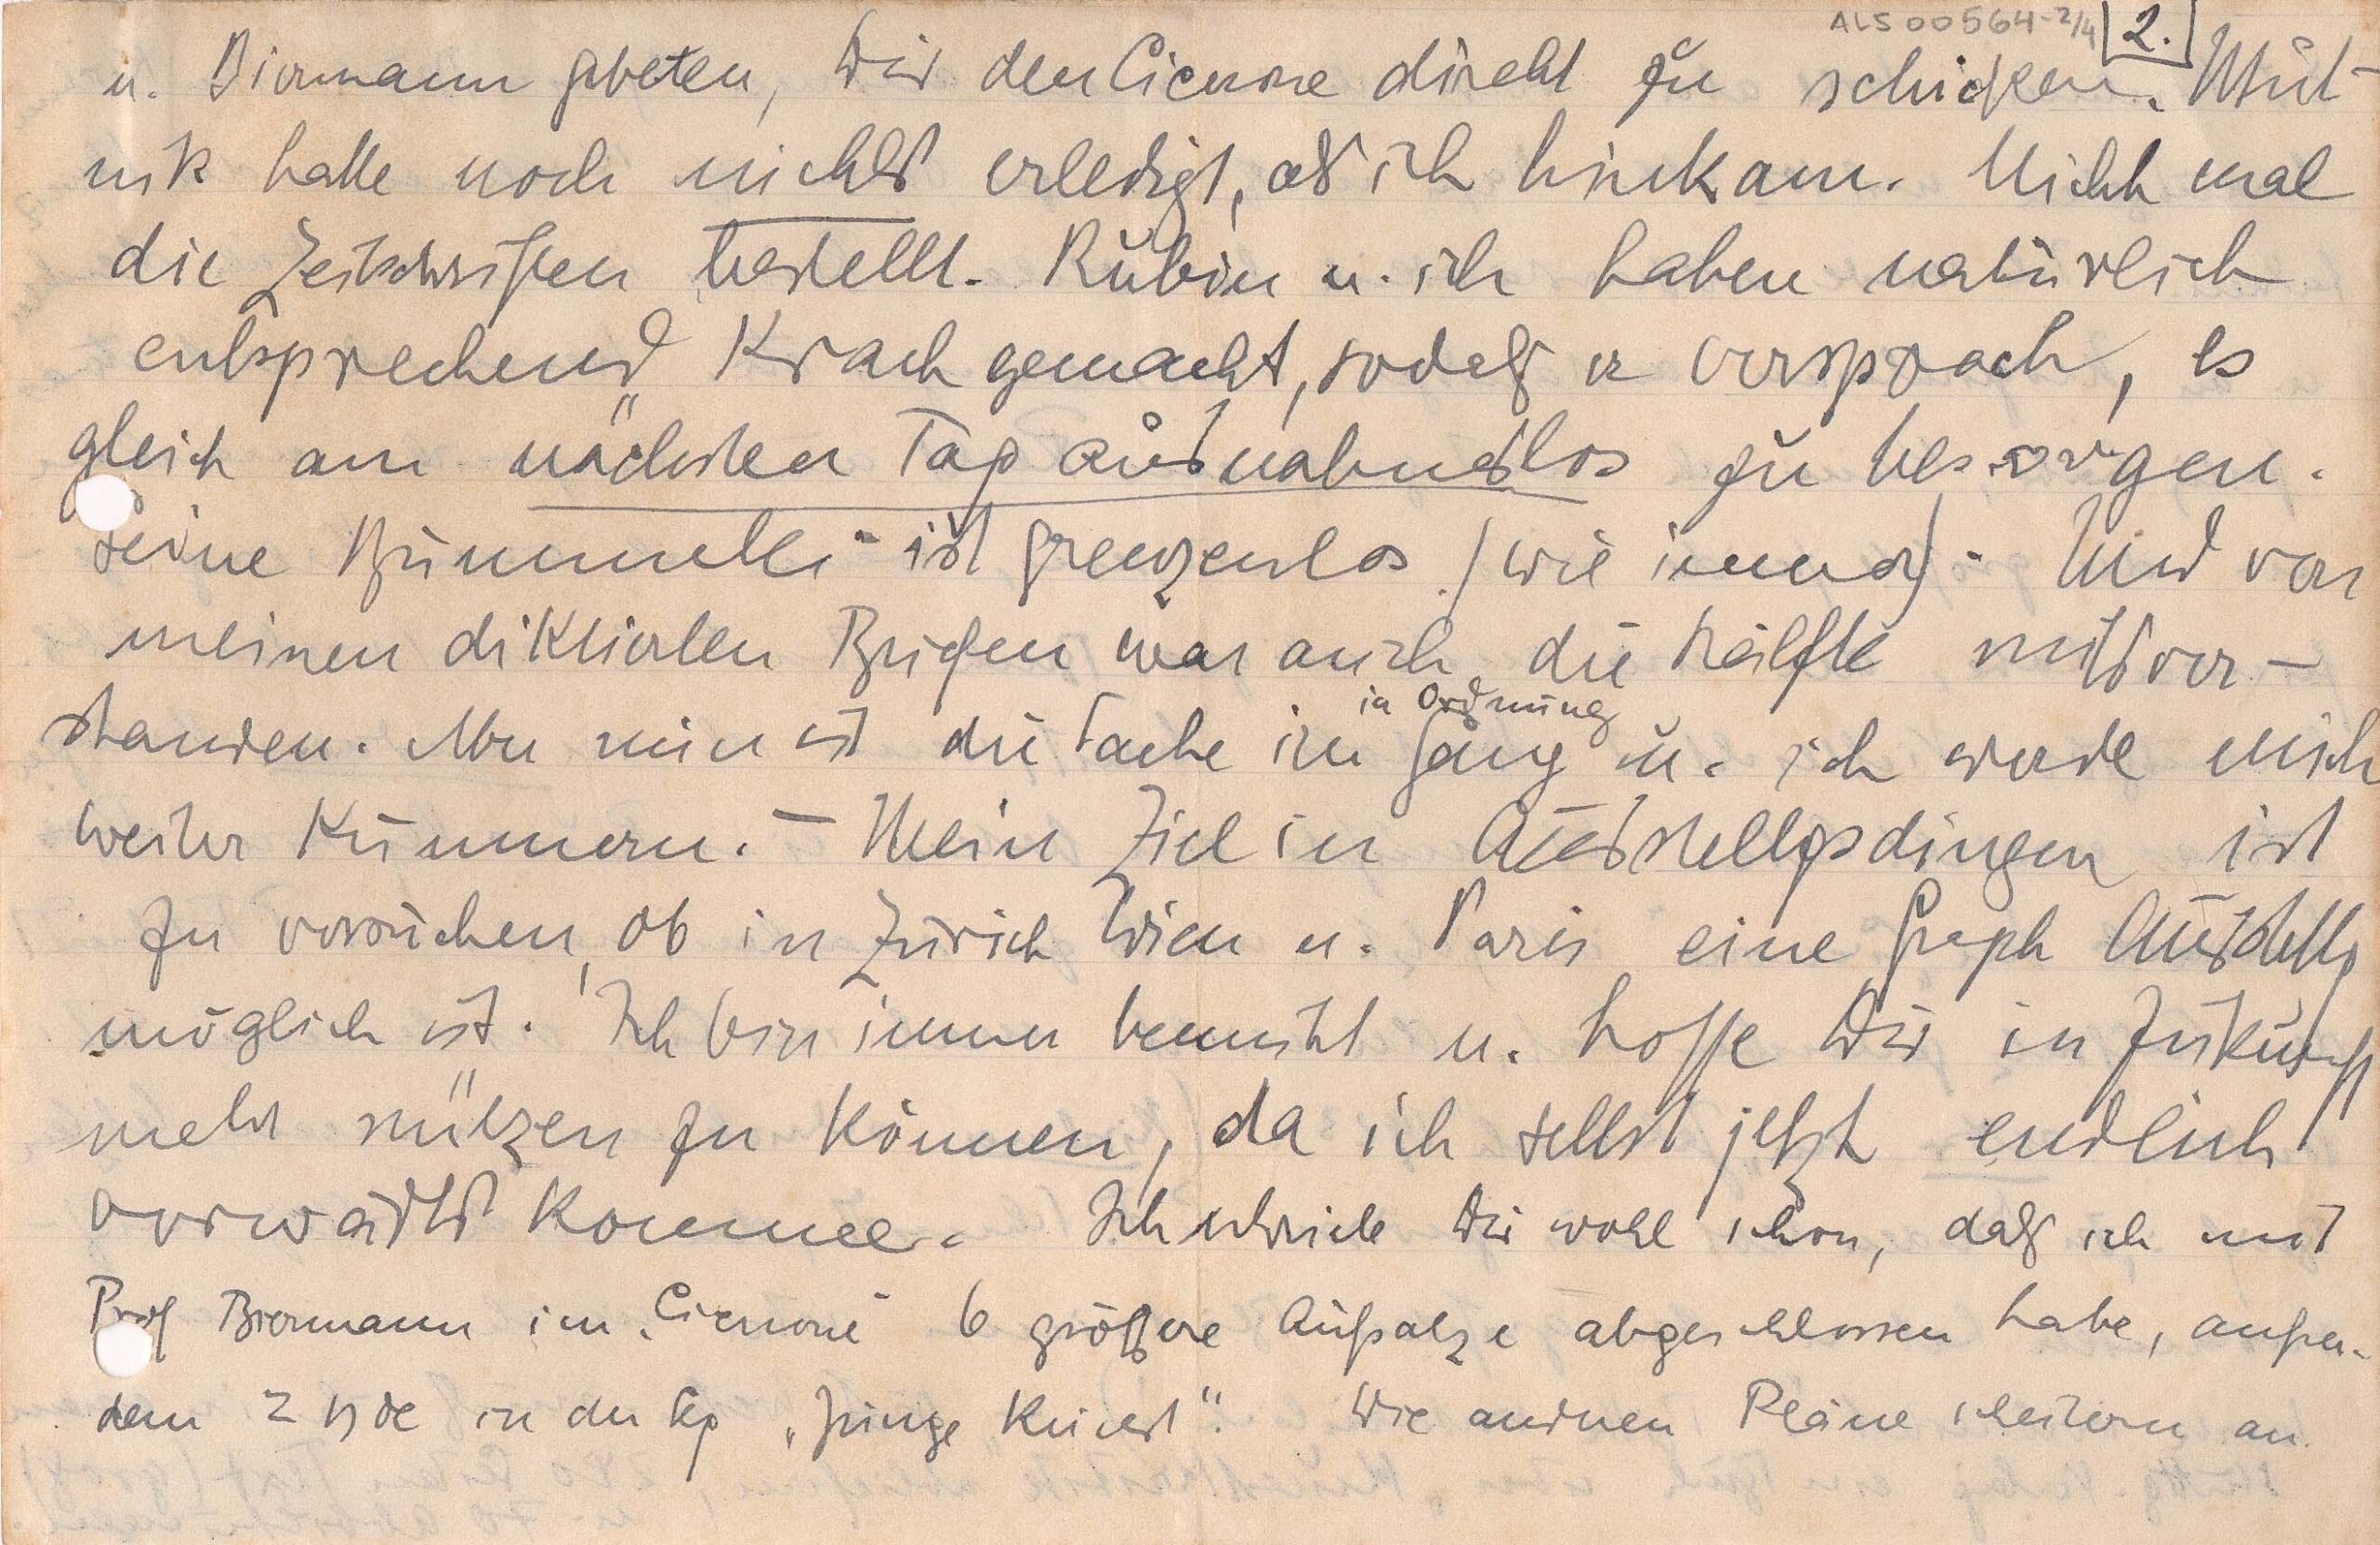 ALS 00564-2/4 2.
u. Biermann gebeten, Dir den Cicerone direkt zu schicken. Wut-
nik hatte noch nichts erledigt, als ich hinkam. Nicht mal
die Zeitschriften bestellt. Rubin u. ich haben natürlich
entsprechend Krach gemacht, sodaß er versprach, es
gleich am nächsten Tag ausnahmslos zu besorgen.
Seine Bummelei ist grenzenlos (wie immer). Und von
meinen diktierten Briefen war auch die Hälfte mißver-
standen. Aber nun ist die Sache im Gang in Ordnung u. ich werde mich
weiter kümmern. – Mein Ziel in Ausstellgsdingen ist
zu versuchen, ob in Zürich Wien u. Paris eine Graph Ausstellg
möglich ist. Ich bin immer bemüht u. hoffe Dir in Zukunft
mehr nützen zu können, da ich selbst jetzt endlich
vorwärts komme. Ich schrieb Dir wohl schon, daß ich mit
Prof Biermann im „Cicerone 6 größere Aufsätze abgeschlossen habe, außer-
dem 2 Bde in der Slg „Junge Kunst". Die andren Pläne scheitern an